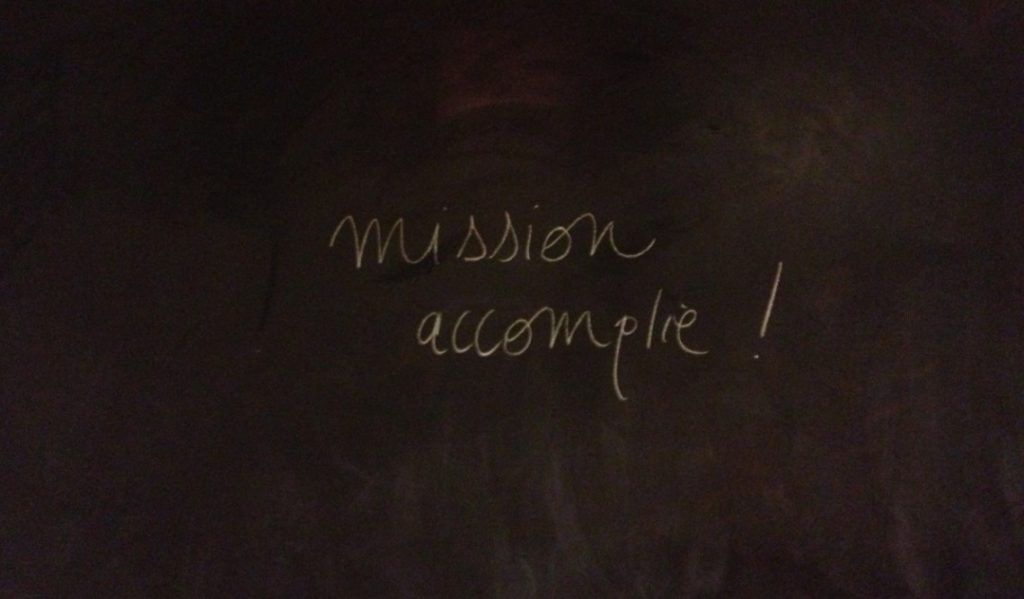 mission
accomplie !